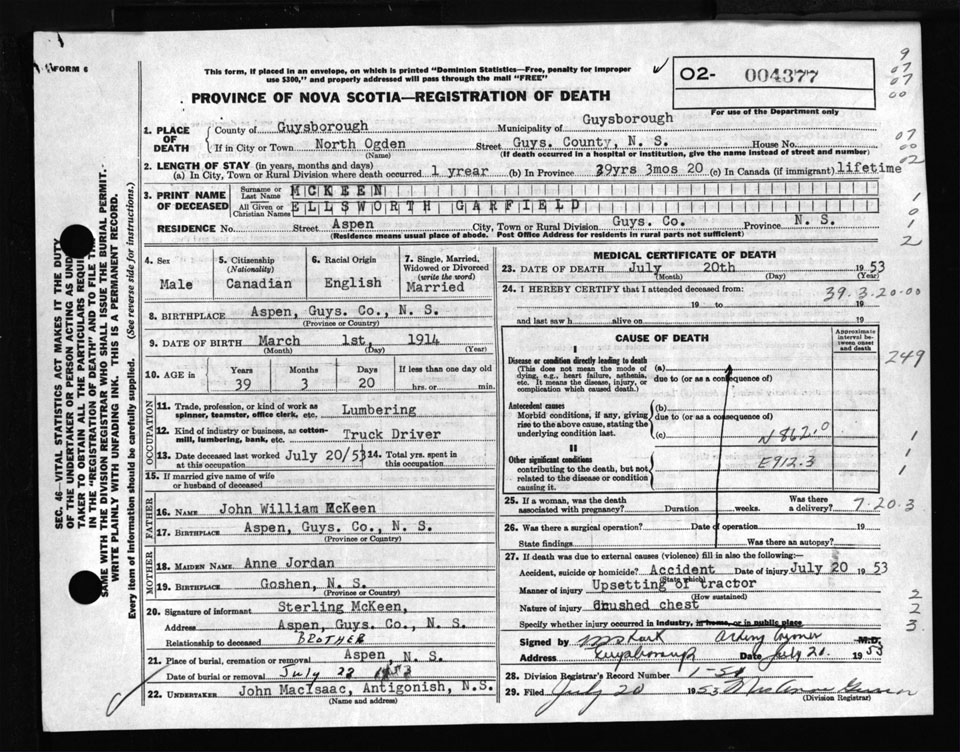 FORM 6
This form, if placed in an envelope, on which is printed "Dominion Statistics—Free, penalty for improper
use $300," and properly addressed will pass through the mail "FREE"
O2- 004377
For use of the Department only
9
07
07
00
PROVINCE OF NOVA SCOTIA—REGISTRATION OF DEATH
1. PLACE OF DEATH
County of Guysborough Municipality of Guysborough
If in City or Town North Ogden Street Guys. County, N. S. House No.
(Name) (If death occurred in a hospital or institution, give the name instead of street and number)
07
00
02
2. LENGTH OF STAY (in years, months and days)
(a) In City, Town or Rural Division where death occurred 1 yrear (b) In Province 39yrs 3mos 20 (c) In Canada (if immigrant) lifetime
3. PRINT NAME OF DECEASED
Surname or Last Name MCKEEN
All Given or Christian Names ELLSWORTH GARFIELD
1
0
1
2
RESIDENCE No. Street Aspen City, Town or Rural Division Guys. Co. Province N. S.
(Residence means usual place of abode. Post Office Address for residents in rural parts not sufficient)
SEC. 46—VITAL STATISTICS ACT MAKES IT THE DUTY
OF THE UNDERTAKER OR PERSON ACTING AS UNDER
TAKER TO OBTAIN ALL THE PARTICULARS REQUI
IN THE "REGISTRATION OF DEATH" AND TO FILE TH
SAME WITH THE DIVISION REGISTRAR WHO SHALL ISSUE THE BURIAL PERMIT.
WRITE PLAINLY WITH UNFADING INK. THIS IS A PERMANENT RECORD.
Every item of information should be carefully supplied. (See reverse side for instructions.)
4. Sex
Male
5. Citizenship
(Nationality)
Canadian
6. Racial Origin
English
7. Single, Married,
Widowed or Divorced
(write the word)
Married
8. BIRTHPLACE Aspen, Guys. Co., N. S.
(Province or Country)
9. DATE OF BIRTH March 1st, 1914
(Month) (Day) (Year)
10. AGE in
Years Months Days If less than one day old
39 3 20 hrs. or min.
OCCUPATION
11. Trade, profession, or kind of work as
spinner, teamster, office clerk, etc. Lumbering
12. Kind of industry or business, as cotton-
mill, lumbering, bank, etc. Truck Driver
13. Date deceased last worked at this occupation July 20/53
14. Total yrs. spent in this occupation
15. If married give name of wife
or husband of deceased
FATHER
16. NAME John William McKeen
17. BIRTHPLACE Aspen, Guys. Co., N. S.
(Province or Country)
MOTHER
18. MAIDEN NAME Anne Jordan
19. BIRTHPLACE Goshen, N. S.
(Province or Country)
20. Signature of informant Sterling McKeen,
Address Aspen, Guys. Co., N. S.
Relationship to deceased BROTHER
21. Place of burial, cremation or removal Aspen, N. S.
Date of burial or removal July 22
22. UNDERTAKER John MacIsaac, Antigonish, N.S.
(Name and address)
MEDICAL CERTIFICATE OF DEATH
23. DATE OF DEATH July 20th 1953
(Month) (Day)
24. I HEREBY CERTIFY that I attended deceased from:
39.3.20.00
19 to 19
and last saw h alive on 19
CAUSE OF DEATH
Approximate
interval between
onset and death
I
Disease or condition directly leading to death
(This does not mean the mode of
dying, e.g., heart failure, asthenia,
etc. It means the disease, injury, or
complication which caused death.)
(a)
due to (or as a consequence of)
249
Antecedent causes
Morbid conditions, if any, giving
rise to the above cause, stating the
underlying condition last.
(b)
due to (or as a consequence of)
(c)
N862.0
1
II
Other significant conditions
contributing to the death, but not
related to the disease or condition
causing it.
E912.3
1
25. If a woman, was the death
associated with pregnancy? Duration weeks. Was there a delivery?
7.20.3
26. Was there a surgical operation? Date of operation 19
State findings Was there an autopsy?
27. If death was due to external causes (violence) fill in also the following:—
Accident, suicide or homicide? Accident Date of injury July 20 1953
(State which)
Manner of injury Upsetting of tractor
(How sustained)
Nature of injury Crushed chest
Specify whether injury occurred in industry, in home, or in public place
2
2
3.
Signed by M.D.
Address Guysborough Date July 20. 1953
28. Division Registrar's Record Number
29. Filed July 20 1953
(Division Registrar)